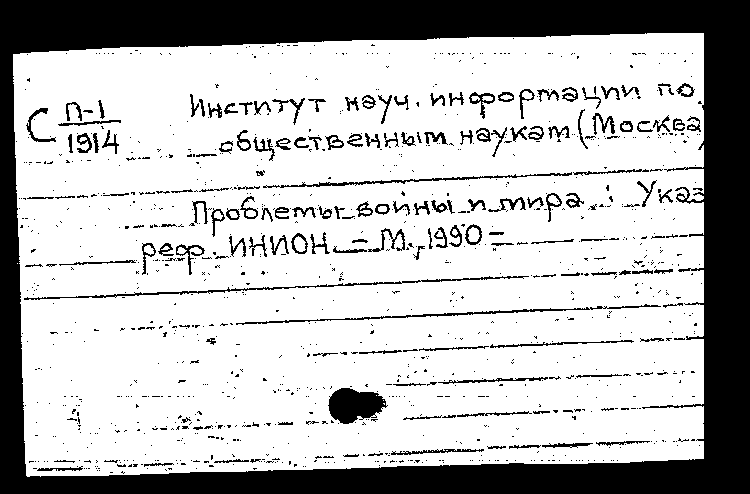 С П-1
1914
Институт науч. информации по
общественным наукам (Москва)
Проблемы войны и мира : Указ
реф. ИНИОН. – М., 1990 –